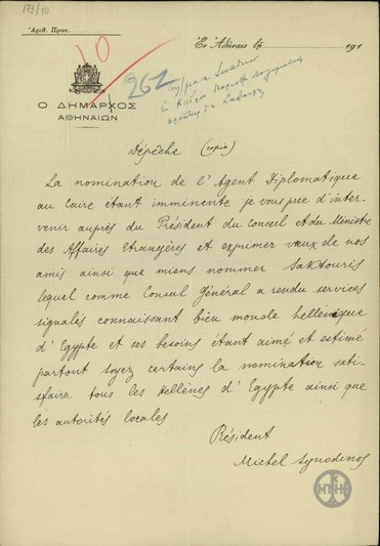 173/10
Ἀριθ. Πρωτ.
Ἐν Ἀθήναις τῇ 191
10
262
Ο ΔΗΜΑΡΧΟΣ
ΑΘΗΝΑΙΩΝ
Dépêche (copie)
La nomination de l'Agent Diplomatique
au Caire étant imminente je vous prie d'inter-
venir auprès du Président du Conseil et du Ministre
des Affaires Etrangères et exprimer vœux de nos
amis ainsi que miens nommer Saktouris
lequel comme Consul Général a rendu services
signalés connaissant bien monde hellénique
d'Egypte et ses besoins étant aimé et estimé
partout soyez certains la nomination satis-
faire tous les Hellènes d'Egypte ainsi que
les autorités locales
Résident
Michel Synodinos